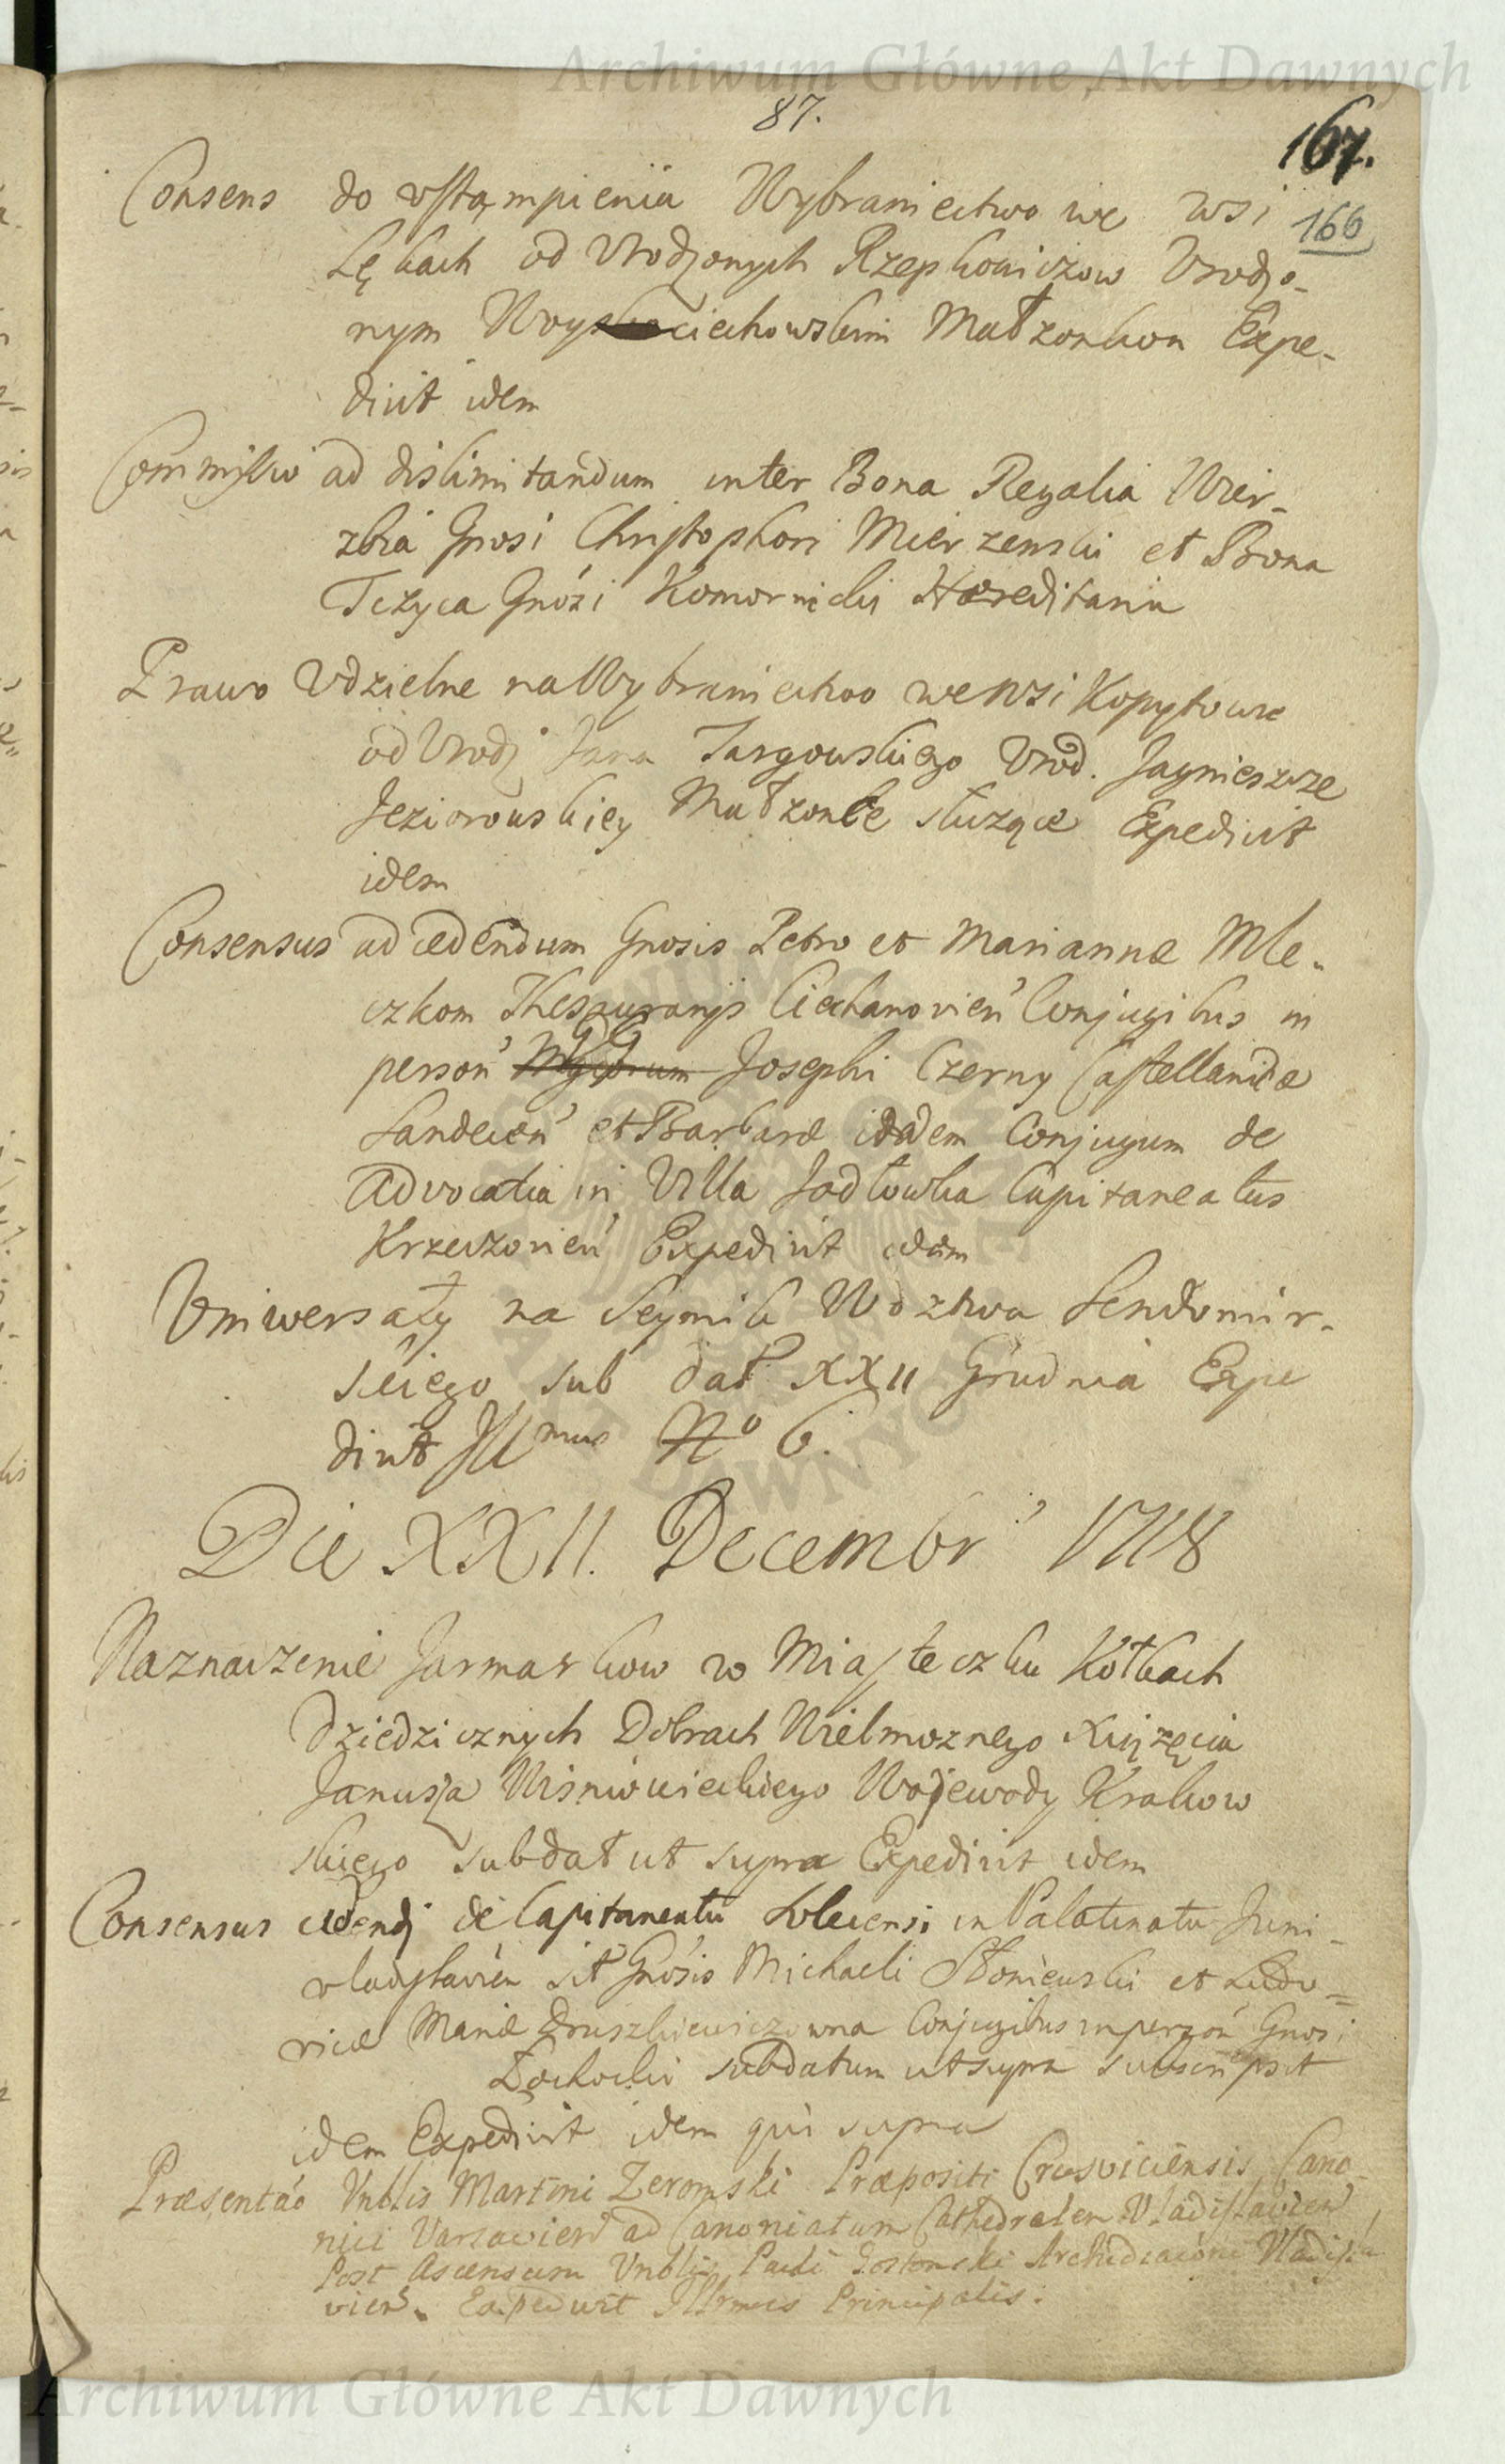 Archiwum Główne Akt Dawnych
87.
167.
166
Consens do vstąmpienia Wybraniectwo we wsi
Lękach od Vrodzonych Rzepkowiczow Vrodzo-
nym Woyciechowskim Małzonkom Expe-
divit idem
Commissio ad dislimitandum inter Bona Regalia Wier-
zbia Gnosi Christophori Mierzenski et Bona
Tczyca Gnosi Komornicki Hæreditaria
Prawo Vdzielne na Wybraniectwo we wsi Kopytowie
od Vrodz Jana Targowskiego Vrod. Jagnieszce
Jeziorowskiey Małzonke słuzące Expedivit
idem
Consensus ad cedendum Gnosis Petro et Mariannæ Mle-
czkom Thesaurarijs Ciechanovien Conjugibus in
person Josephi Czerny Castellanidæ
Sandecen et Barbaræ Conjugum de
Advocatia in Villa Jodłowka Capitaneatus
Krzeczovien Expedivit idem
Vniwersały na Seymik Wdztwa Sendomir-
skiego sub dat XXII Grudnia Expe
divit Jllmus No 6.
Die XXII. Decembr 1718
Naznaczenie Jarmarkow w Miasteczku Kołkach
Dziedzicznych Dobrach Wielmoznego Xiązęcia
Janusza Wisniowieckiego Wojewody Krakow
skiego sub dat ut supra Expedivit idem
Consensus cedendi de Capitaneatu in Palatinatu Juni-
vladislavien sit Gnosis Michaeli Słoniewski et Ludo-
vicæ Mariæ Druszkiewiczowna Conjugibus in person Gnosi
Łochocki sub datum ut supra subscripsit
idem Expedivit idem qui supra
Præsentao Vnblis Martini Zeromski Præpositi Crusviciensis Cano-
nici Varsavien ad Canoniatum Cathedralem Vladislavien
Post Ascensum Vnblis Pauli Archidiaconi Vladisla
vien. Expedivit Jllrmus Principalis.
Archiwum Główne Akt Dawnych